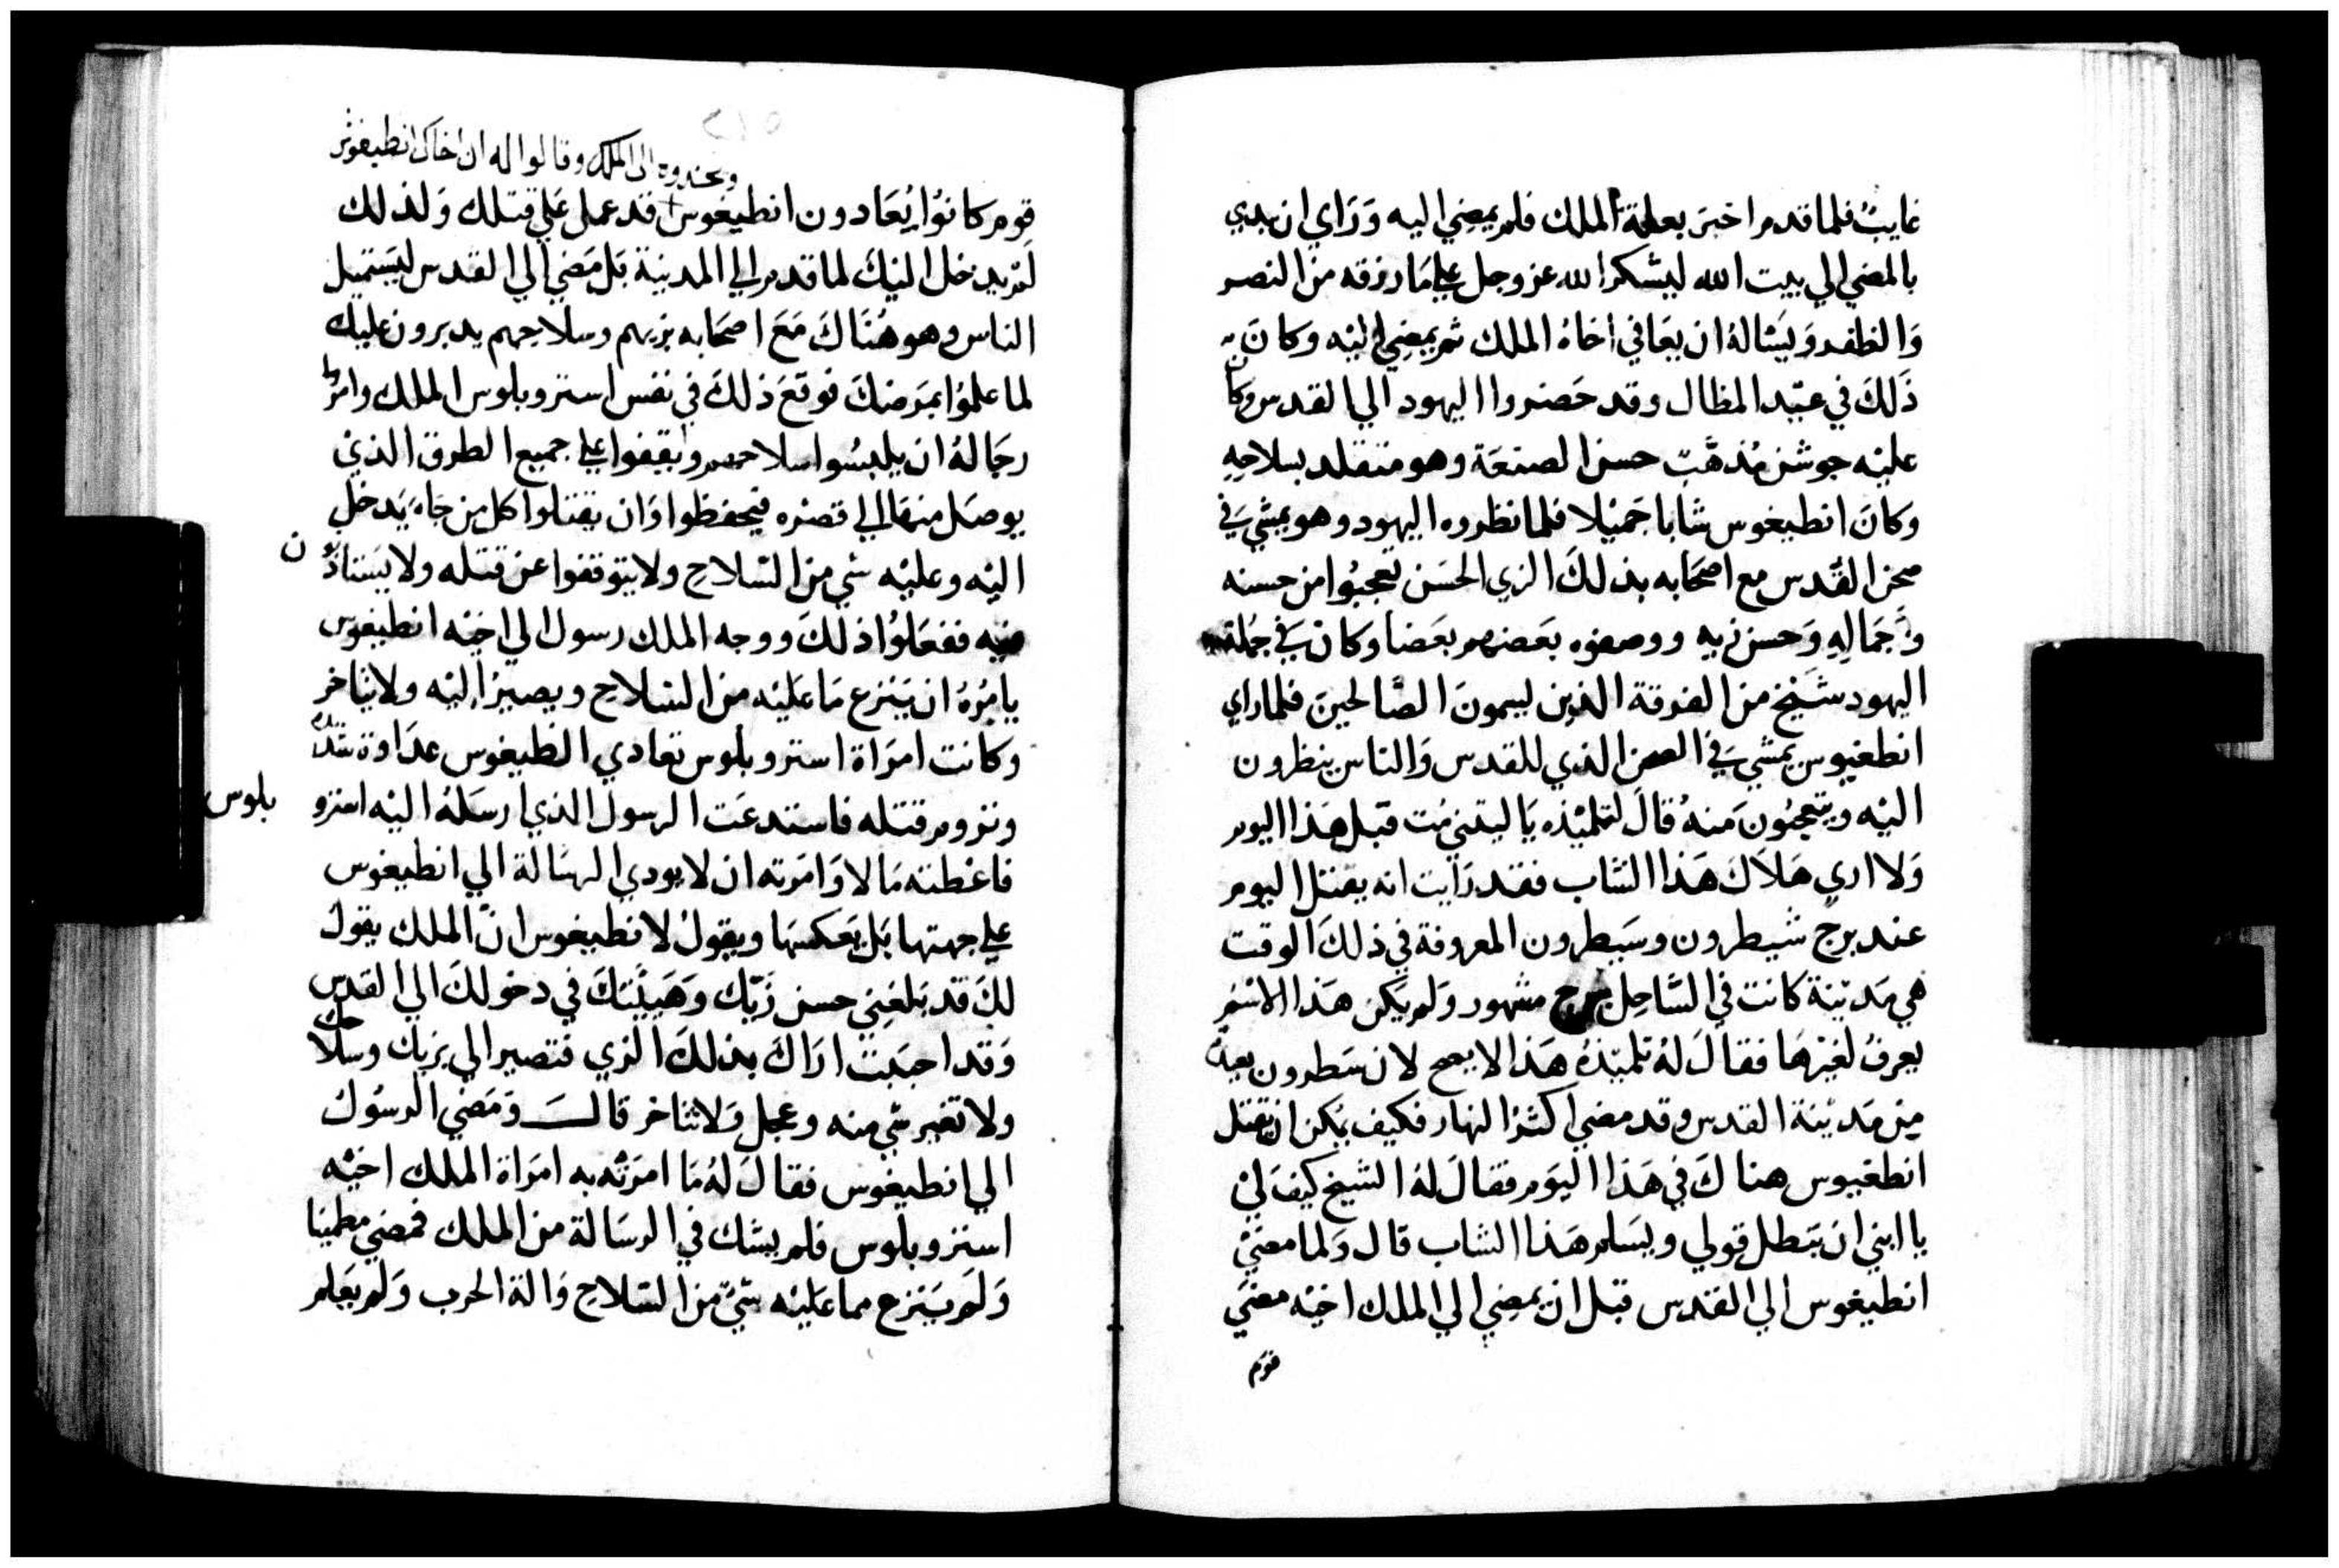 غايبٌ فلما قدم اخبرَ بعلة الملك فلم يمضِي اليه وَرَاي ان يبدي
بالمضي الي بيت الله ليشكر الله عز وجل علي مَا رزقه من النصر
وَالظفر وَيَسْالهُ ان يعَافي اخاهُ الملك ثم يمضِي اليْه وكانَ
ذَلكَ في عيْد المظال وقد حَضروا اليهود الي القدس وكان
عليْه جوشن مُذهَّبٌ حسن الصنعَة وهو متقلد بسلاحِهِ
وكانَ انطيغوس شابا جَميْلا فلما نظروه اليهود وهو يمشي فَي
صحن القُدس مع اصحَابه بذلكَ الزي الحسَن تعجبُوا من حسنه
وَجَمَالهِ وَحسن زيهِ ووصفوه بعَضهم بعَضا وكانَ فَي جُملة
اليهود شَيْخ من الفرقة الذين ليسمونَ الصَّالحينَ فلما راي
انطغيوس يمشي فَي الصحن الذي للقدس وَالناس ينظرون
اليْه ويتعجبُون مَنهُ قالَ لتلميْذه يَا ليتني مُت قبل هَذا اليوم
وَلا اري هَلاَكَ هَذا الشاب فقد رَايت انه يقتل اليوم
عند برج شَيطرون وسَيطرون المعروفة في ذلكَ الوقت
هي مَديْنة كانت في السَّاحِل ببرج مشهور وَلم يَكن هَذا الاسْم
يعرفُ لغيْرهَا فقالَ لهُ تلميْذهُ هَذا لا يصح لان سَطرون بعيدة
مِن مَديْنة القدس وقد مضي اكثرُ النهار فكيف يُكن ان يقتل
انطغيوس هناكَ في هَذا اليَوم فقالَ لهُ الشيخ كيفَ لي
يا ابني ان يَبطل قولي ويسَلم هَذا الشاب قال وَلما مضَيْ
انطيغوس الي القدس قبل ان يمضِي الي الملك اخيْه مضَي
قوم
وحندوه الي الملك وقالوا له ان اخاك انطيغوس
قوم كانوُا يُعَادون انطيغوس+ قد عمل عَلي قتلك وَلذلك
لَم يدخل اليْكَ لما قدم الي المدينة بَل مَضي الي القدس ليَستميل
الناس وهو هُنَاكَ مَعَ اصحَابه بزيهم وسلاحهم يدبرون عليك
لما علموُا بمرَضكَ فوقعَ ذلكَ في نفس استروبلوس الملك وامَر
رجَالهُ ان يلبسُوا سلاحهم ويقفوا علي جميع الطرق الذيْ
يوصَل منهَا الي قصْره فيحفظوا وَان يقتلوا كل من جَاء يَدخل
اليْه وعليْه شي من السّلاحِ ولا يتوقفوا عن قتله ولا يَستاذنو ن
فيه ففعَلوُا ذلكَ ووجه الملك رسول الي اخيْه انطيغوس
يامُرهُ ان يَنزع مَا عَليْه من السّلاحِ ويصيرْ اليْه ولا يتاخر
وكانت امرَاة استروبلوس تعَادي انطيغوس عدَاوة شديدة
وتروم قتله فاستدعَت الرسول الذي ارسَلهُ اليْه استرو بلوس
فاعْطته مَالا وَامَرته ان لا يودي الرسَالة الي انطيغوس
علي جهتها بَل يَعكسهَا ويقولُ لانطيغوس انّ الملك يقول
لكَ قد بَلغنِي حسن زَيّك وَهَيئتكَ في دخولكَ الي القدس
وَقد احبَبت ارَاكَ بذلكَ الزي فتصير الي بزيك وسلاحك
ولا تغير شي منه وعجل وَلا تتاخر قالَ وَمَضي الرسُول
الي انطيغوس فقالَ لهُ مَا امرَته به امرَاة الملك اخيْه
استروبلوس فلم يشك في الرسَالة من الملك فمضي مطمينا
وَلَم يَنزع مما عَليْه شيْ من السّلاحِ وَالة الحرب وَلم يعَلم